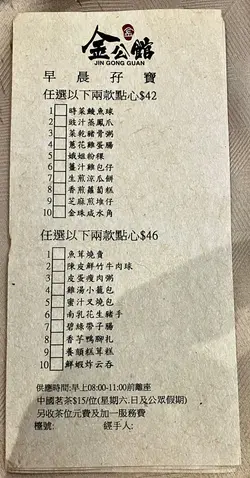 金公館
JIN GONG GUAN
早晨孖寶
任選以下兩款點心$42
1 時菜鯪魚球
2 豉汁蒸鳳爪
3 菜乾豬骨粥
4 蔥花雞蛋腸
5 娥姐粉粿
6 薑汁雞包仔
7 生煎涼瓜餅
8 香煎蘿蔔糕
9 芝麻煎堆仔
10 金珠咸水角
任選以下兩款點心$46
1 魚茸燒賣
2 陳皮鮮竹牛肉球
3 皮蛋瘦肉粥
4 雞湯小籠包
5 蜜汁叉燒包
6 南乳花生豬手
7 碧綠帶子腸
8 香芋鴨腳扎
9 養顏糕茸糕
10 鮮蝦炸云吞
供應時間:早上08:00-11:00前離座
中國茗茶$15/位(星期六,日及公眾假期)
另收茶位元費及加一服務費
檯號: 經手人: